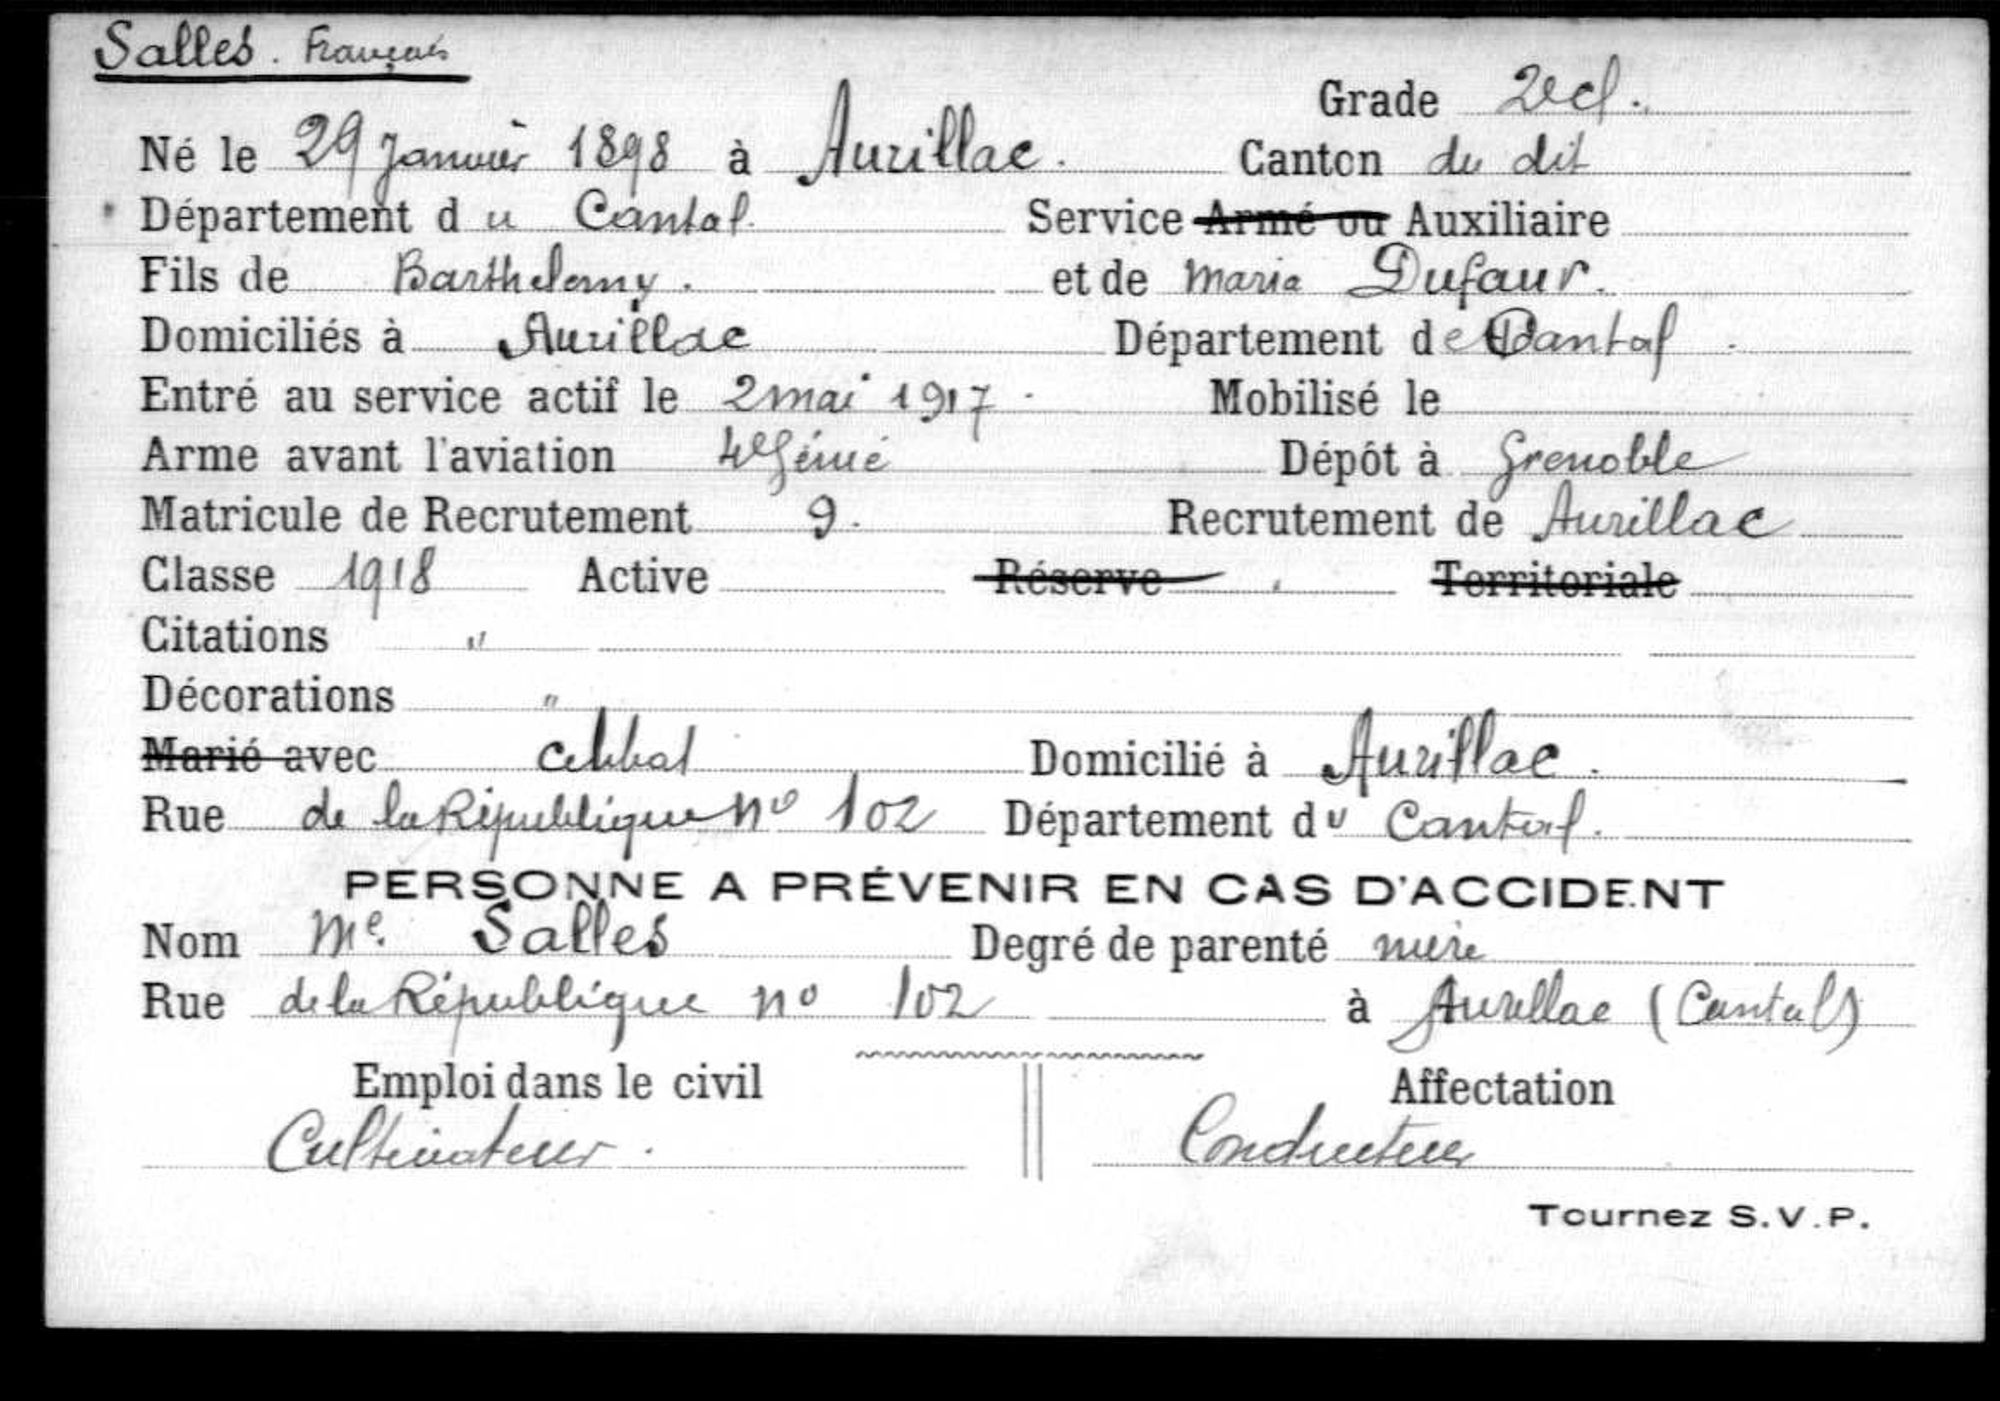 Salles. Français
Grade 2e cl.
Né le 29 Janvier 1898 à Aurillac. Canton du dit
Département du Cantal. Service Armé ou Auxiliaire
Fils de Barthelemy. et de Maria Dufaur.
Domiciliés à Aurillac Département de Cantal
Entré au service actif le 2 mai 1917. Mobilisé le
Arme avant l'aviation 4e Génie Dépôt à Grenoble
Matricule de Recrutement 9. Recrutement de Aurillac
Classe 1918 Active Réserve Territoriale
Citations "
Décorations "
Marié avec Domicilié à Aurillac.
Rue de la République no 102 Département du Cantal.
PERSONNE A PRÉVENIR EN CAS D'ACCIDENT
Nom Me. Salles Degré de parenté mère
Rue de la République no 102 à Aurillac (Cantal)
Emploi dans le civil Affectation
Cultivateur. Conducteur
Tournez S.V.P.